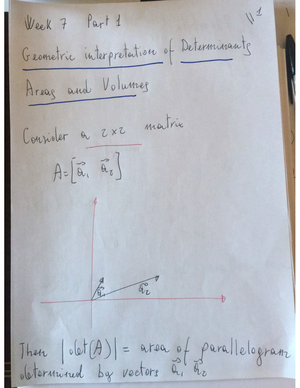 Week 7 Part 1
Geometric interpretation of Determinants
Areas and Volumes
Consider a 2×2 matrix
A=[a⃗₁ a⃗₂]
a⃗₁ a⃗₂
Then |det(A)| = area of parallelogram
determined by vectors a⃗₁ a⃗₂